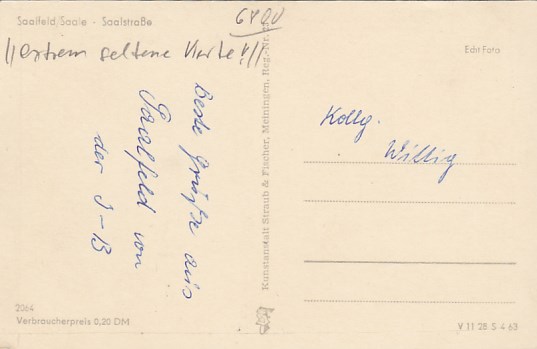 Saalfeld/Saale - Saalstraße
6800
!!extrem seltene Karte!!!
Beste Grüße aus
Saalfeld von
der J-B
Kunstanstalt Straub & Fischer, Meiningen, Reg.-Nr.
Echt Foto
Kollg.
Willig
2064
Verbraucherpreis 0,20 DM
V 11 28 S 4 63